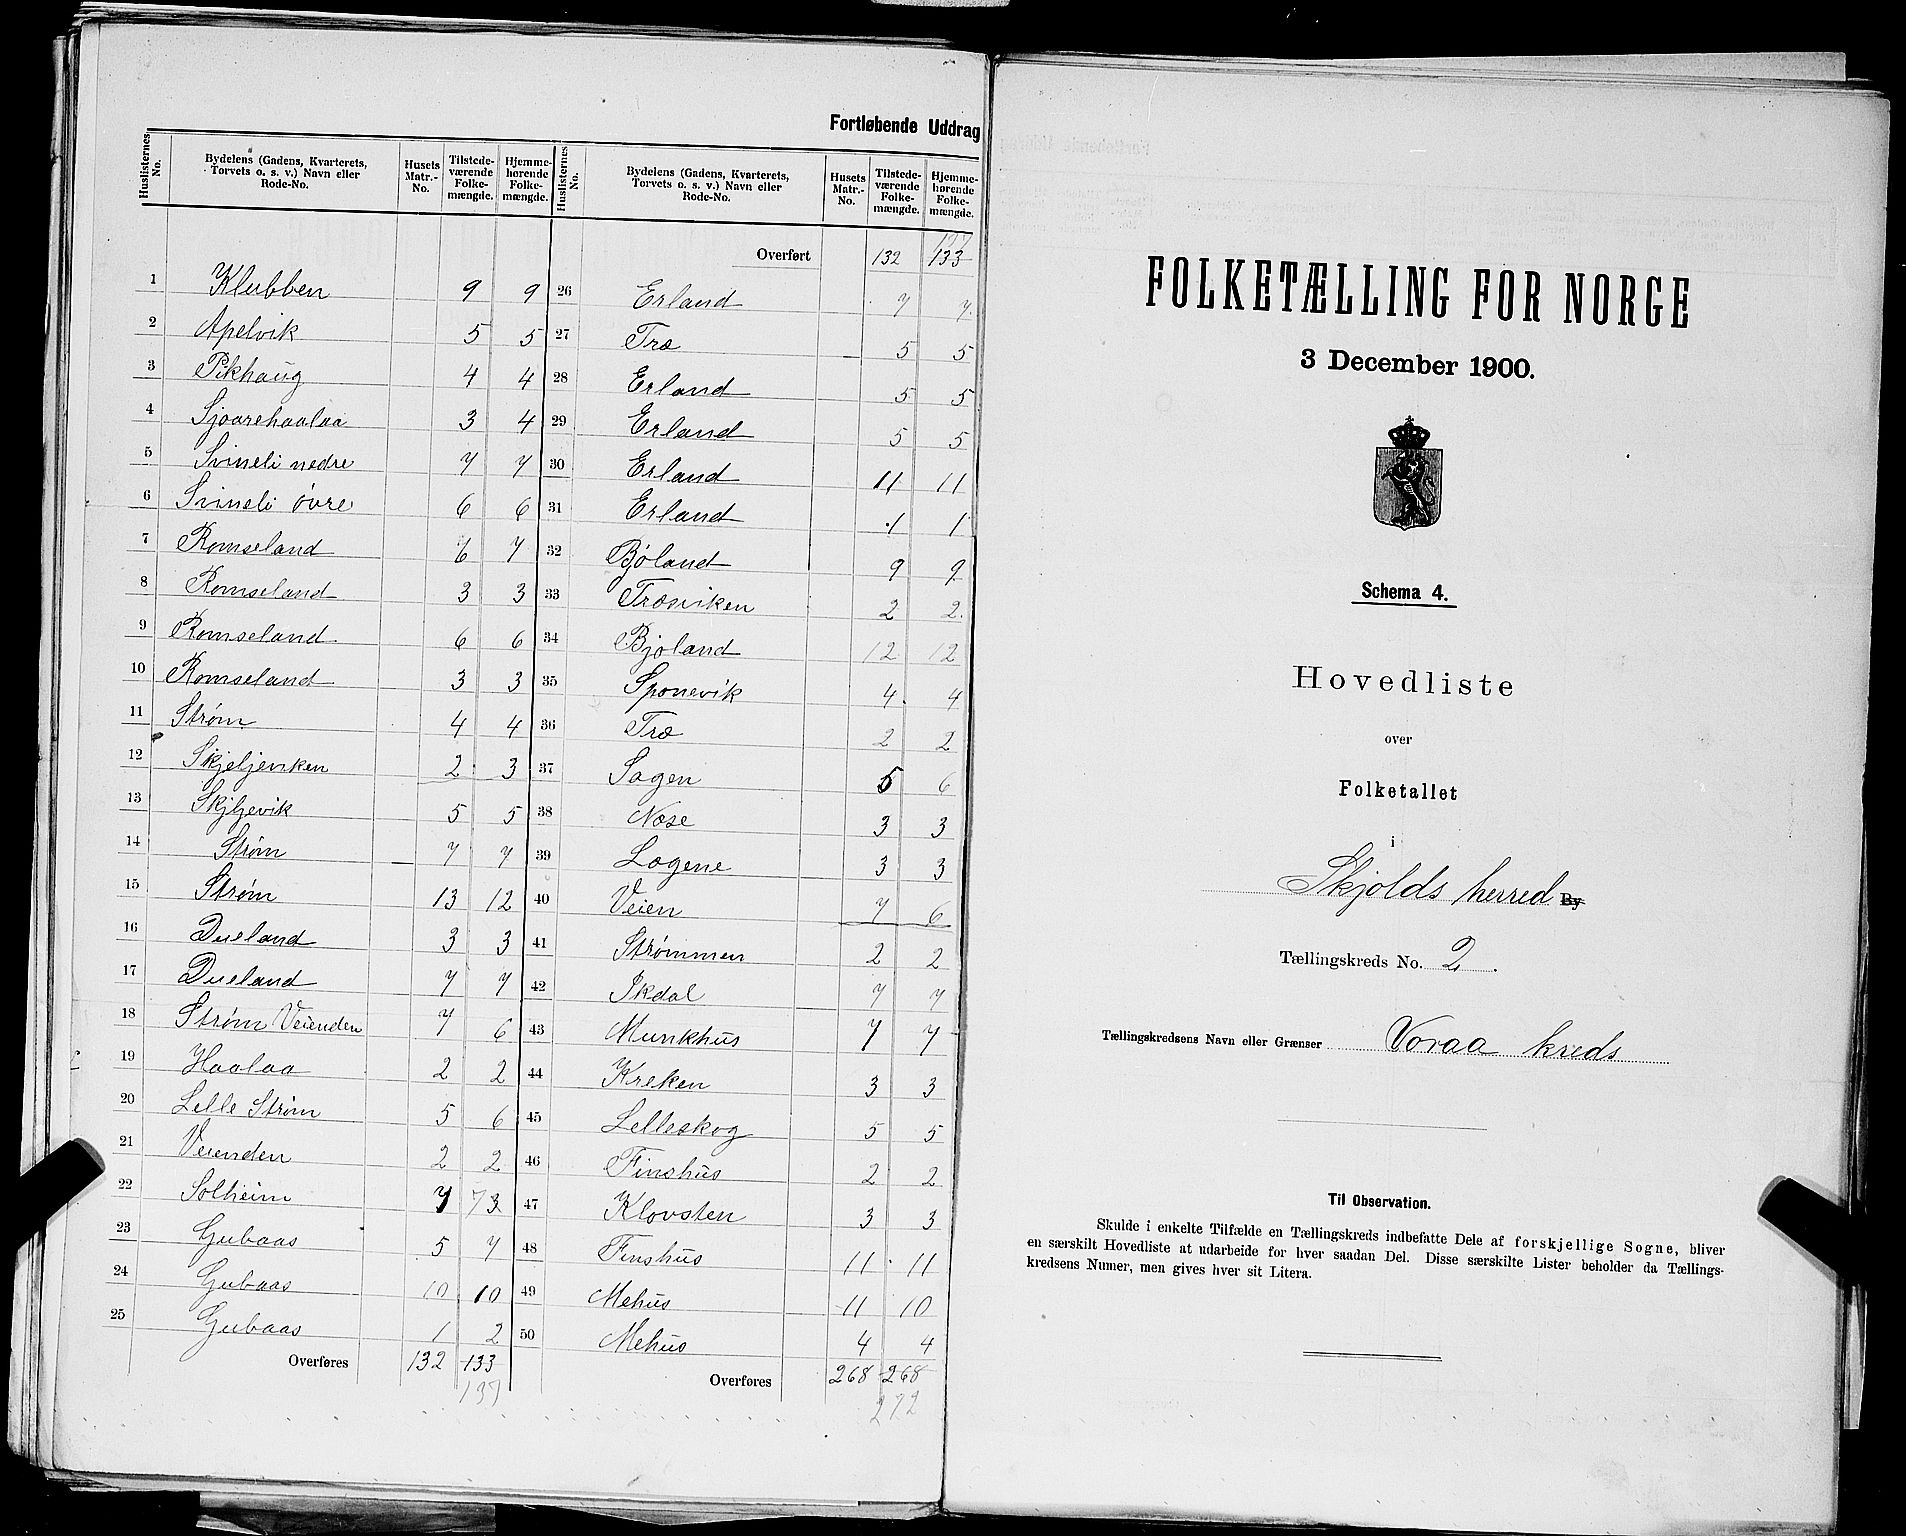 Fortløbende Uddrag
Huslisternes No. | Bydelens (Gadens, Kvarterets, Torvets o. s. v.) Navn eller Rode-No. | Husets Matr.-No. | Tilstedeværende Folkemængde. | Hjemmehørende Folkemængde.
1 Klubben 9 9
2 Apelvik 5 5
3 Pikhaug 4 4
4 Sjoarehaalaa 3 4
5 Svineli nedre 7 7
6 Svineli övre 6 6
7 Romseland 6 7
8 Romseland 3 3
9 Romseland 6 6
10 Romseland 3 3
11 Strøm 4 4
12 Skjeljeviken 2 3
13 Skjljevik 5 5
14 Strøm 7 7
15 Strøm 13 12
16 Dueland 3 3
17 Dueland 7 7
18 Strøm Veienden 7 6
19 Haalaa 2 2
20 Lelle Strøm 5 6
21 Veienden 2 2
22 Solheim 7 7 3
23 Gubaas 5 7
24 Gubaas 10 10
25 Gubaas 1 2
Overføres 132 133
137
Huslisternes No. | Bydelens (Gadens, Kvarterets, Torvets o. s. v.) Navn eller Rode-No. | Husets Matr.-No. | Tilstedeværende Folkemængde. | Hjemmehørende Folkemængde.
Overført 132 133
26 Erland 7 7.
27 Træ 5 5
28 Erland 5 5
29 Erland 5 5
30 Erland 11 11
31 Erland 1 1
32 Bjøland 9 9
33 Træsviken 2 2.
34 Bjøland 12 12
35 Sponevik 4 4
36 Træ 2 2
37 Sagen 5 6
38 Næse 3 3
39 Løgene 3 3
40 Veien 7 6
41 Strømmen 2 2
42 Ikdal 7 7
43 Munkhus 7 7
44 Kreken 3 3
45 Lelleskog 5 5
46 Finshus 2 2
47 Klovsten 3 3
48 Finshus 11 11
49 Mehus 11 10
50 Mehus 4 4
Overføres 268 268
272
FOLKETÆLLING FOR NORGE
3 December 1900.
Schema 4.
Hovedliste
over
Folketallet
i
Skjolds herred By
Tællingskreds No. 2.
Tællingskredsens Navn eller Grænser Voraa kreds
Til Observation.
Skulde i enkelte Tilfælde en Tællingskreds indbefatte Dele af forskjellige Sogne, bliver
en særskilt Hovedliste at udarbeide for hver saadan Del. Disse særskilte Lister beholder da Tællings-
kredsens Numer, men gives hver sit Litera.